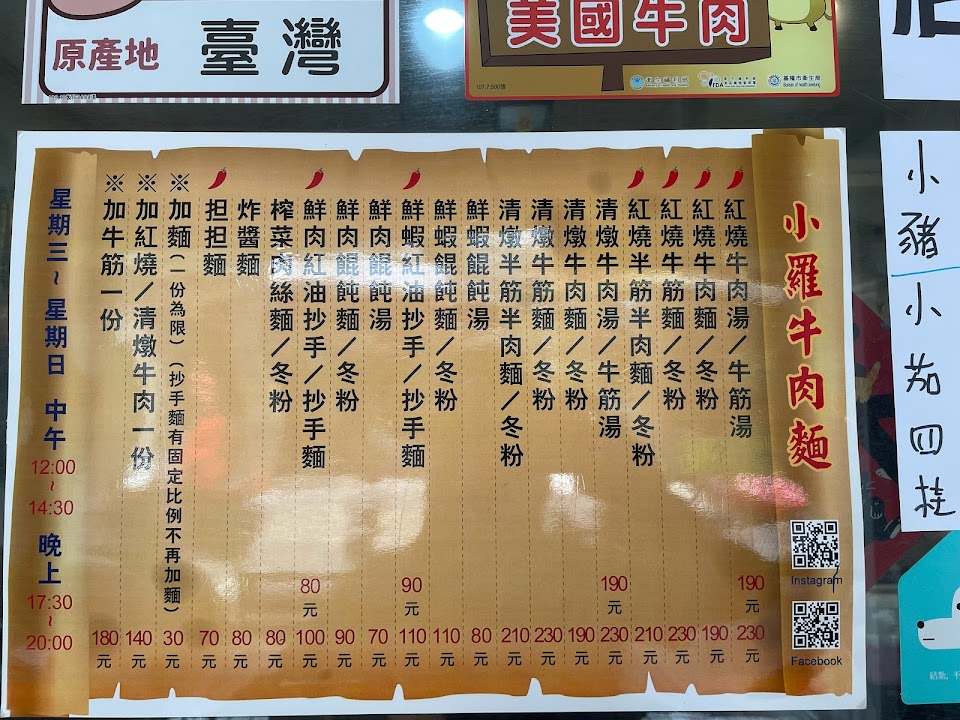 原產地 臺灣
美國牛肉
107.7.500張
衛生福利部
FDA
基隆市衛生局
小羅牛肉麵
Instagram
Facebook
紅燒牛肉湯／牛筋湯 190元 230元
紅燒牛肉麵／冬粉 190元
紅燒牛筋麵／冬粉 230元
紅燒半筋半肉麵／冬粉 210元
清燉牛肉湯／牛筋湯 190元 230元
清燉牛肉麵／冬粉 190元
清燉牛筋麵／冬粉 230元
清燉半筋半肉麵／冬粉 210元
鮮蝦餛飩湯 80元
鮮蝦餛飩麵／冬粉 110元
鮮蝦紅油抄手／抄手麵 90元 110元
鮮肉餛飩湯 70元
鮮肉餛飩麵／冬粉 90元
鮮肉紅油抄手／抄手麵 80元 100元
榨菜肉絲麵／冬粉 80元
炸醬麵 80元
担担麵 70元
※加麵（一份為限）（抄手麵有固定比例不再加麵） 30元
※加紅燒／清燉牛肉一份 140元
※加牛筋一份 180元
星期三~星期日 中午 12:00~14:30 晚上 17:30~20:00
小豬
小茄四桂